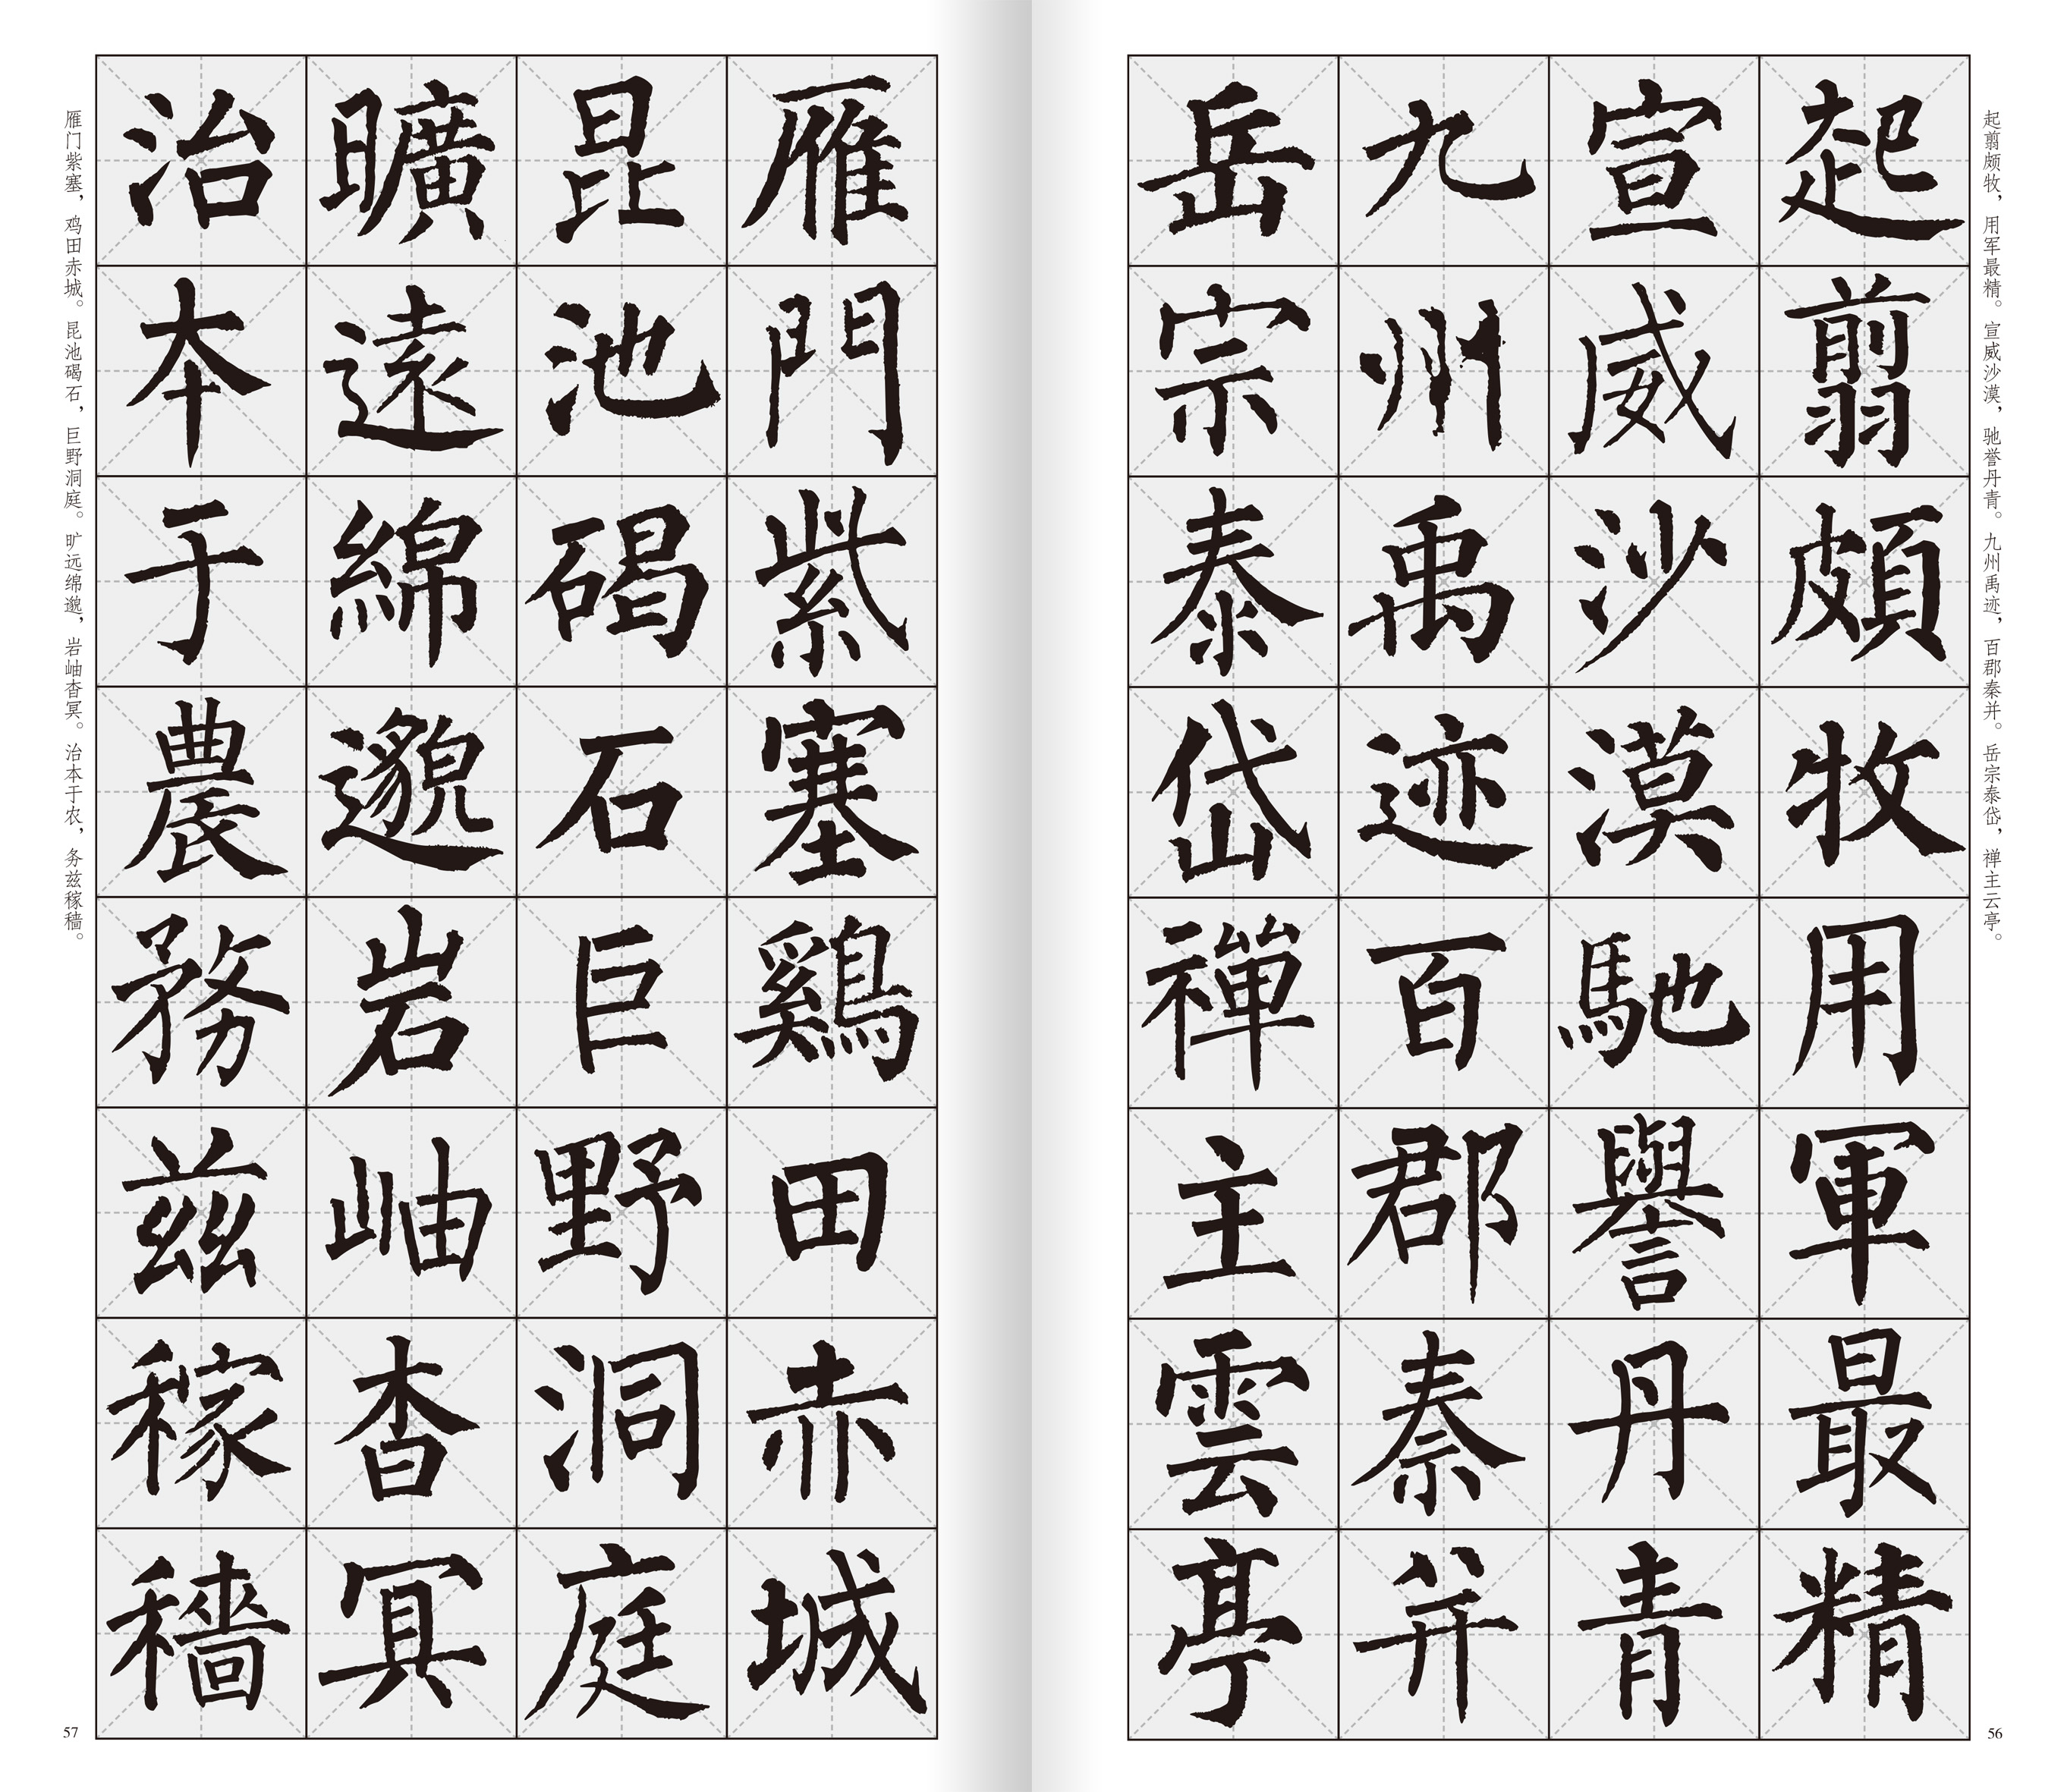 起翦颇牧，用军最精。宣威沙漠，驰誉丹青。九州禹迹，百郡秦并。岳宗泰岱，禅主云亭。
起翦頗牧用軍最精
宣威沙漠馳譽丹青
九州禹迹百郡秦并
岳宗泰岱禪主雲亭
56
雁門紫塞鷄田赤城
昆池碣石巨野洞庭
曠遠綿邈岩岫杳冥
治本于農務兹稼穡
雁门紫塞，鸡田赤城。昆池碣石，巨野洞庭。旷远绵邈，岩岫杳冥。治本于农，务兹稼穑。
57